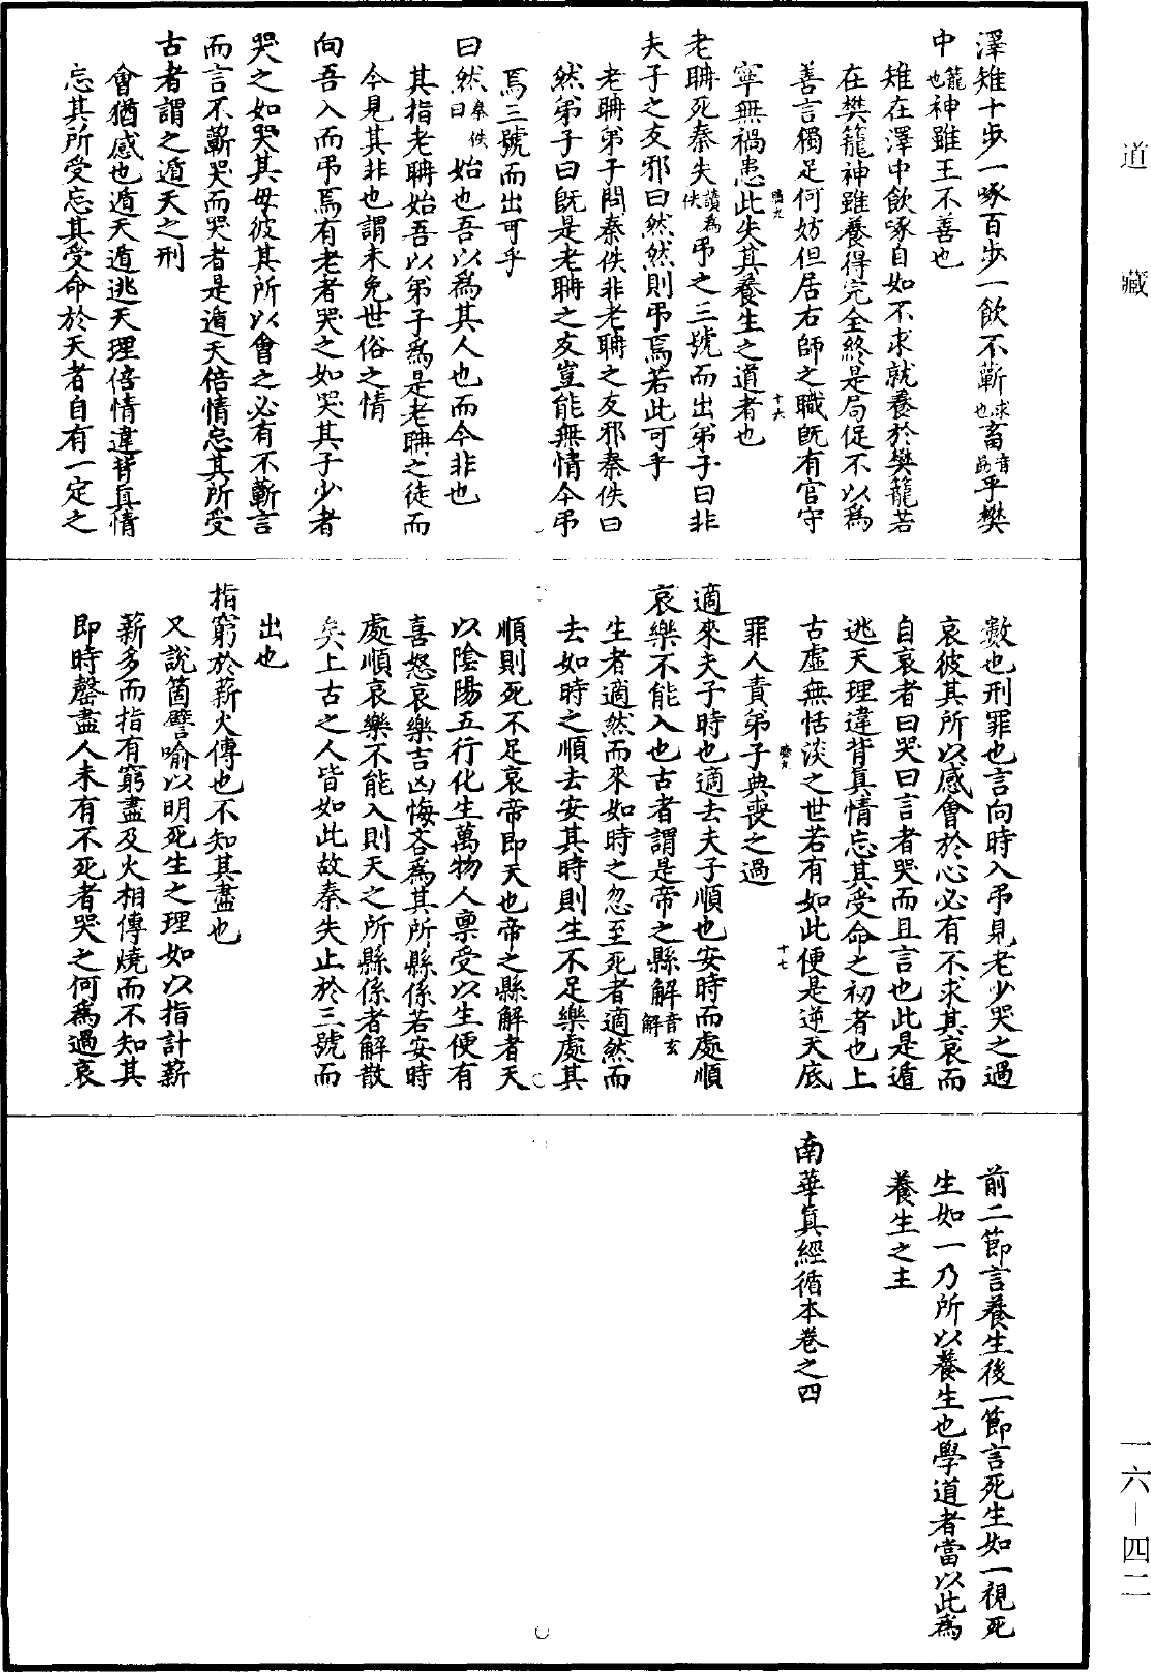 澤雉十步一啄百步一飲不蘄求也畜音旭乎樊
中籠也神雖王不善也
雉在澤中飲啄自如不求就養於樊籠若
在樊籠神雖養得完全終是局促不以為
善言獨足何妨但居右師之職既有官守
寧無禍患此失其養生之道者也
十六
老聃死秦失讀為佚弔之三號而出弟子曰非
夫子之友邪曰然然則弔焉若此可乎
老聃弟子問秦佚非老聃之友邪秦佚曰
然弟子曰既是老聃之友豈能無情今弔
焉三號而出可乎
曰然秦佚曰始也吾以為其人也而今非也
其指老聃始吾以弟子為是老聃之徒而
今見其非也謂未免世俗之情
向吾入而弔焉有老者哭之如哭其子少者
哭之如哭其母彼其所以會之必有不蘄言
而言不蘄哭而哭者是遁天倍情忘其所受
古者謂之遁天之刑
會猶感也遁天遁逃天理倍情違背真情
忘其所受忘其受命於天者自有一定之
數也刑罪也言向時入弔見老少哭之過
哀彼其所以感會於心必有不求其哀而
自哀者曰哭曰言者哭而且言也此是遁
逃天理違背真情忘其受命之初者也上
古虛無恬淡之世若有如此便是逆天底
十七
罪人責弟子典喪之過
適來夫子時也適去夫子順也安時而處順
哀樂不能入也古者謂是帝之縣解音玄解
生者適然而來如時之忽至死者適然而
去如時之順去安其時則生不足樂處其
順則死不足哀帝即天也帝之縣解者天
以陰陽五行化生萬物人稟受以生便有
喜怒哀樂吉凶悔吝為其所縣係若安時
處順哀樂不能入則天之所縣係者解散
矣上古之人皆如此故秦失止於三號而
出也
指窮於薪火傳也不知其盡也
又說箇譬喻以明死生之理如以指計薪
薪多而指有窮盡及火相傳燒而不知其
即時罄盡人未有不死者哭之何為過哀
前二節言養生後一節言死生如一視死
生如一乃所以養生也學道者當以此為
養生之主
南華真經循本卷之四
道藏
一六－四二